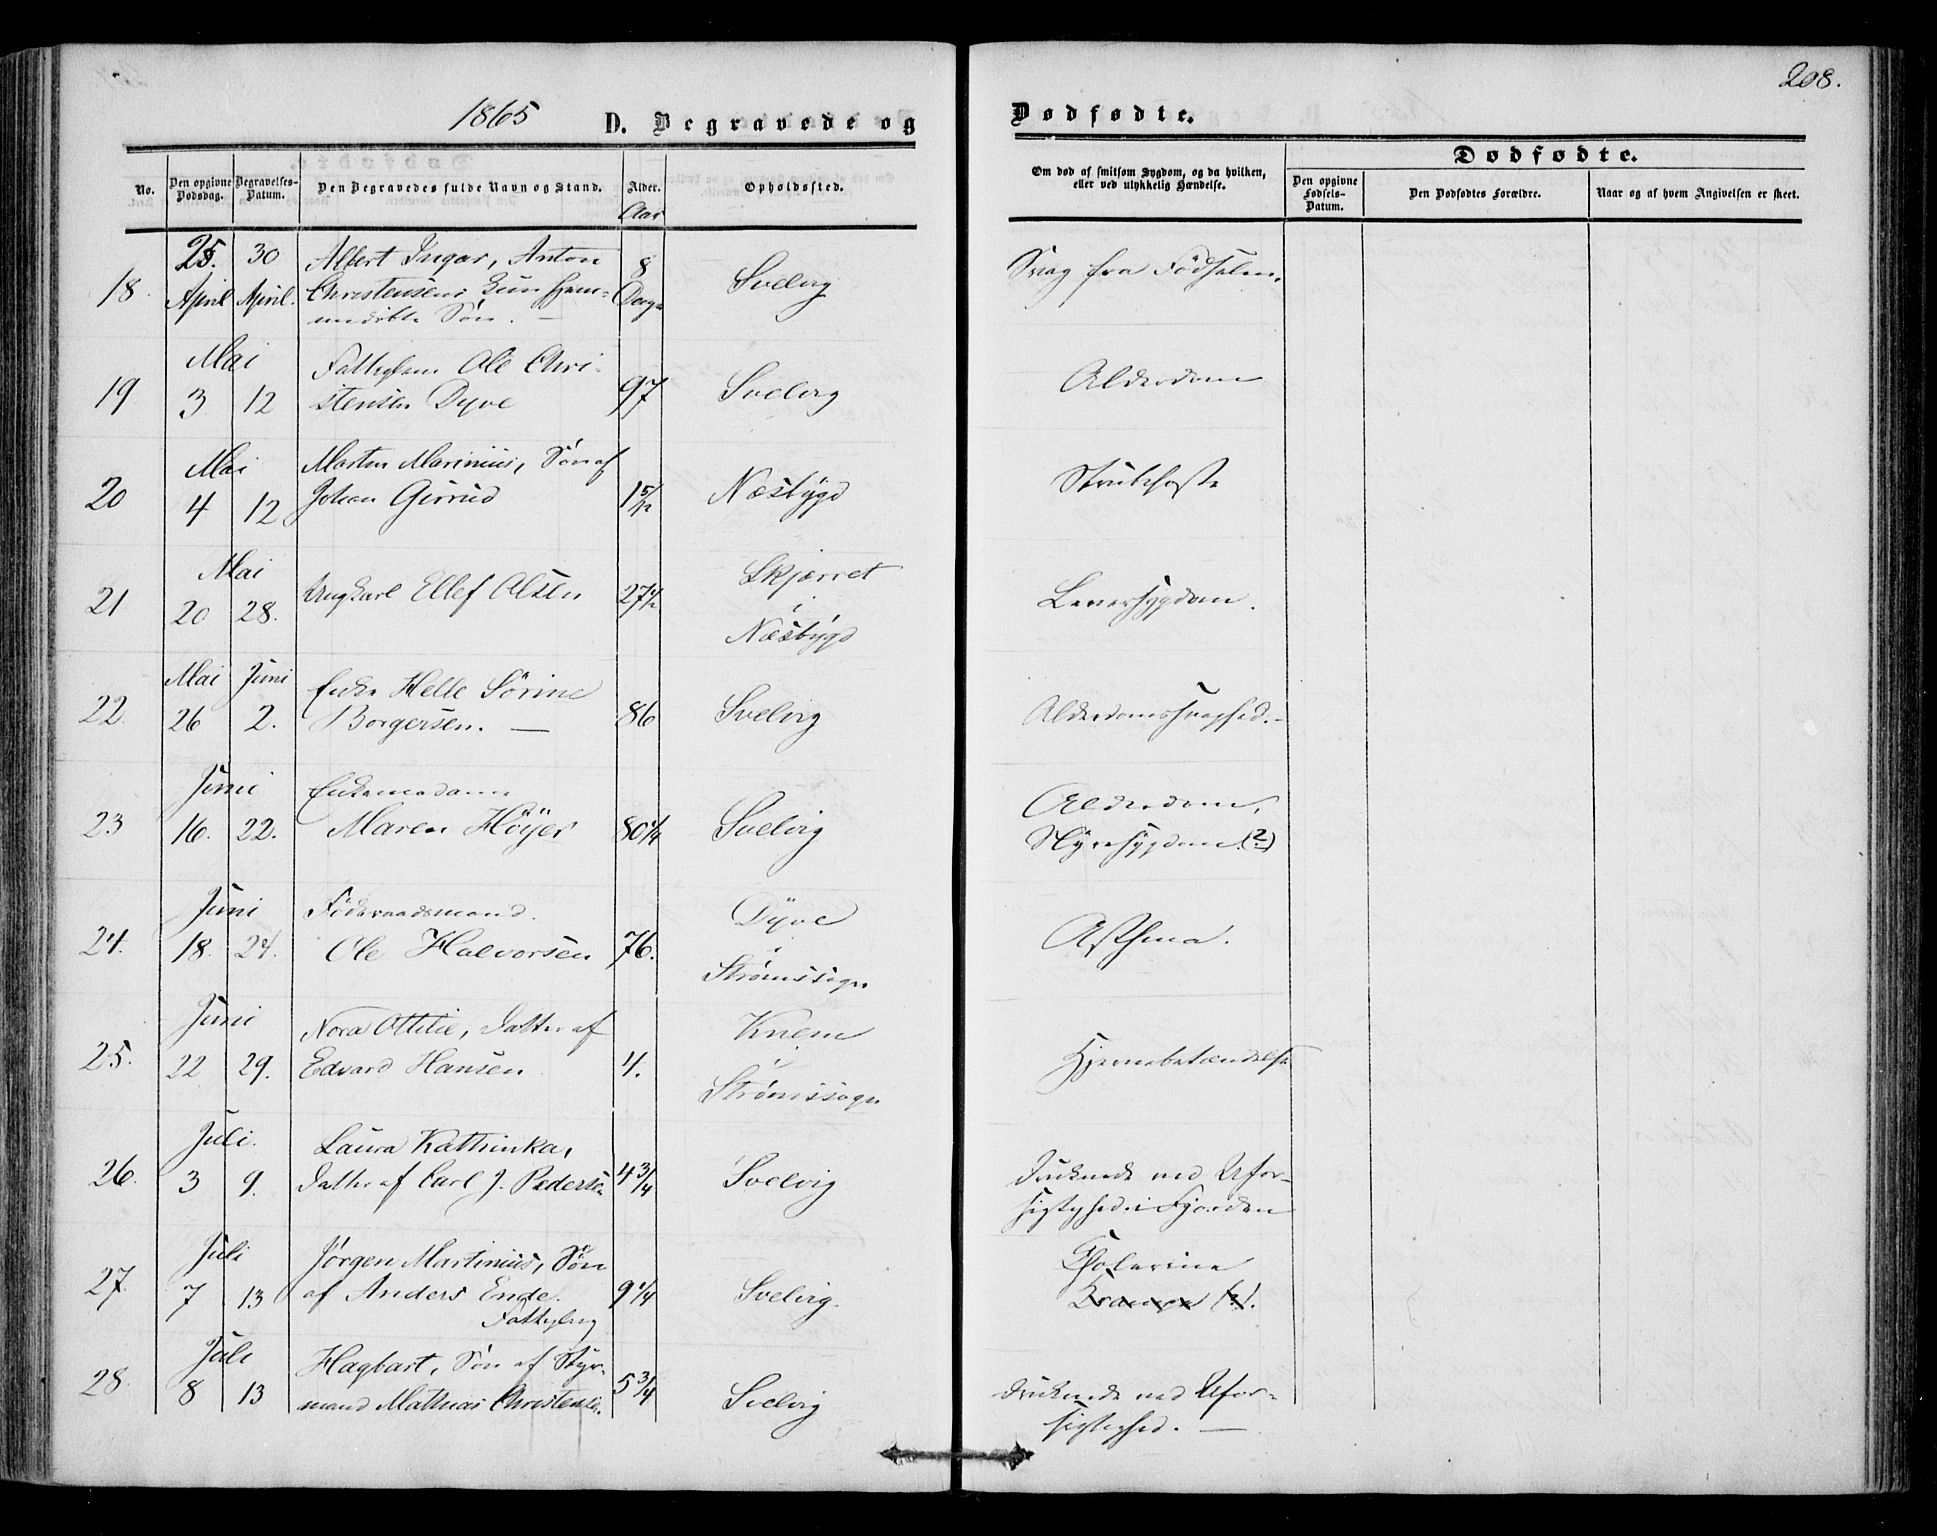 208.
1865 D. Begravede og Dødfødte.
Dødfødte.
No. Den opgivne Dødsdag. Begravelses-Datum. Den Begravedes fulde Navn og Stand. Alder. Opholdssted. Om død af smitsom Sygdom, og da hvilken, eller ved ulykkelig Hændelse. Den opgivne Fødsels-Datum. Den Dødfødtes Forældre. Naar og af hvem Angivelsen er skeet.
Aar
25. 30 Albert Ingar, Anton 8
18. April April. Christensens Dage Svelvig Svag fra Fødselen.
Søn. —
Mai Ole Chri-
19 3 12 stensen Dyve 97 Svelvig Alderdom
Mai Marten Marinius, Søn af
20 4 12 Johan Girrud 1 5/12 Næsbygd Strubehoste
Mai Skjærret
21 20 28. Ungkarl Ellef Olsen 27 1/2 i Leversygdom.
Næsbygd
Mai Juni Enke Helle Sörine
22. 26 2. Borgersen. — 86 Svelvig Alderdomssvaghed. -
Juni Enkemadame Alderdom,
23 16. 22. Maren Höÿer 80 1/4 Svelvig Nyresygdom (?)
Juni Föderaadsmand. Dyve
24. 18. 24. Ole Halvorsen 76. i Asthma.
Strømssogn
Juni Nora Ottilie, Datter af Knem
25. 22 29. Edvard Hansen 4. i Hjernebetændelse
Strømssogn
Juli. Laura Kathrinka,
26. 3 9. Datter af Carl J. Pedersen 4 3/4 Svelvig Druknede ved Ufor-
sigtighed i Fjorden
Juli Jörgen Martinius, Søn Cholerine
27. 7 13 af Anders Ende. 9 1/4 Svelvig. Krampe (?).
Fattiglem
Juli Hagbart, Søn af Styr-
28. 8 13 mand Mathias Christensen. 5 3/4 Svelvig Druknede ved Ufor-
sigtighed. —